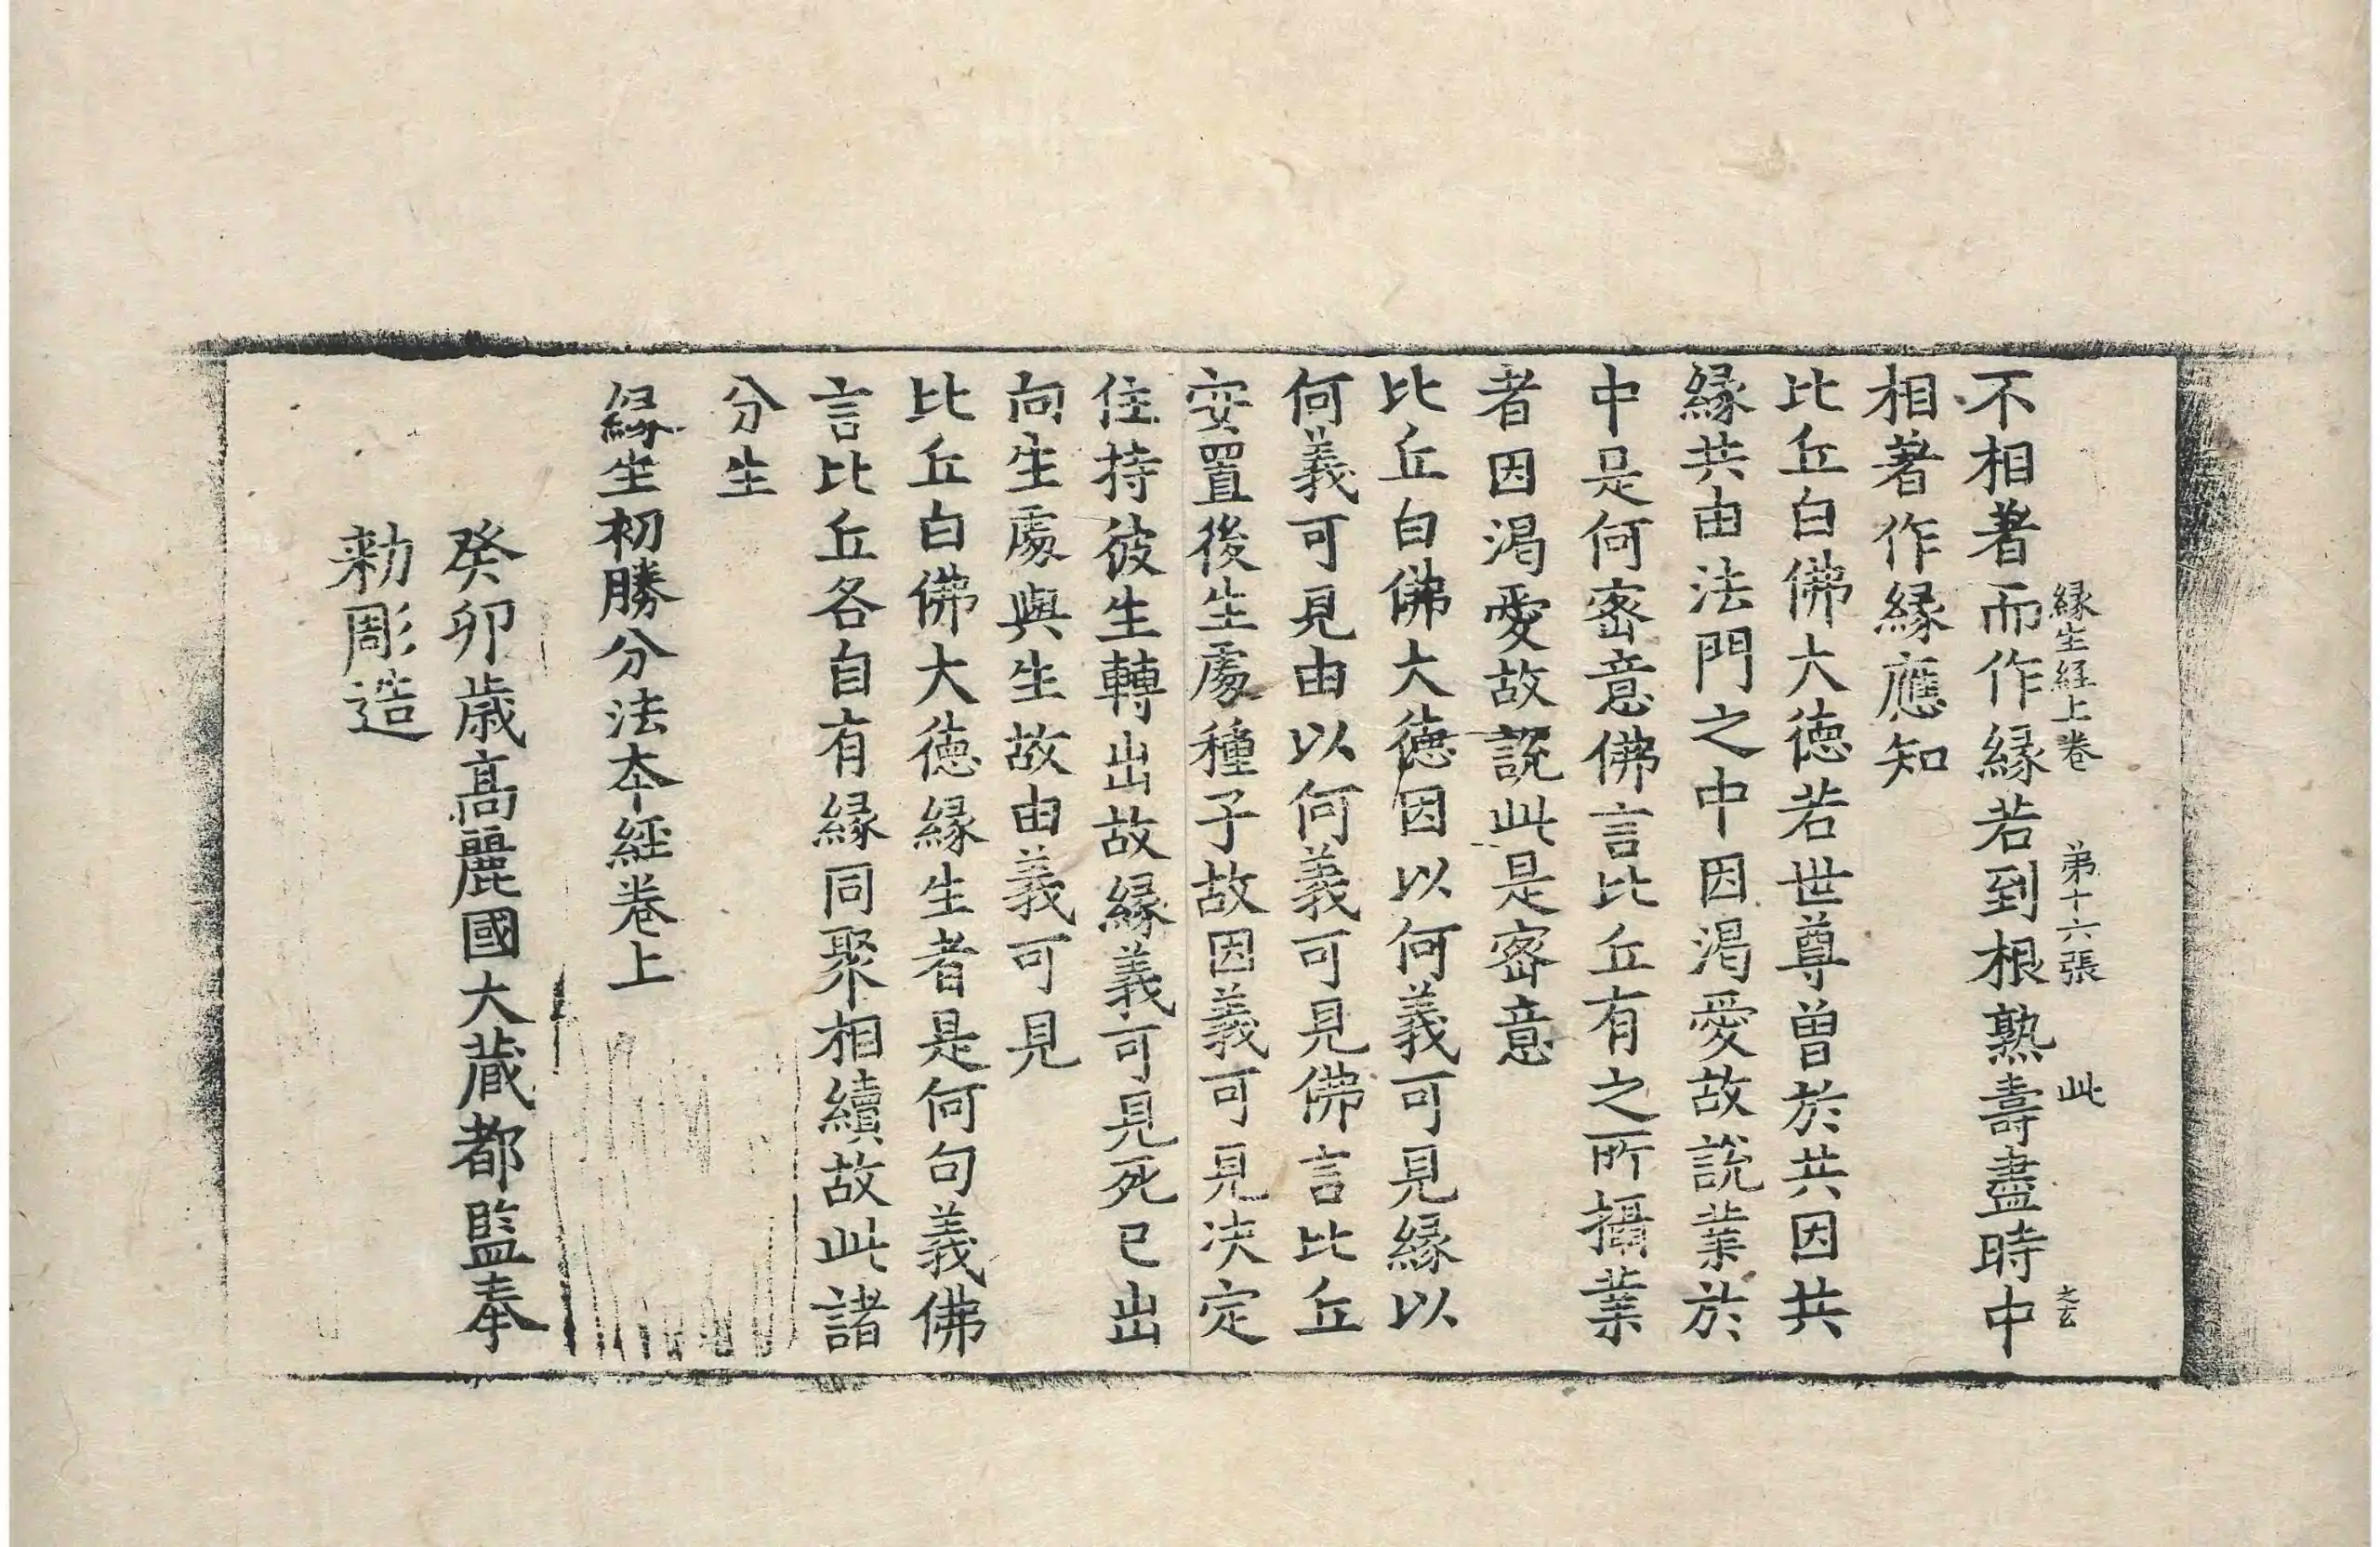 緣生経上卷　第十六張　此　文玄
不相著而作緣若到根熟壽盡時中
相著作緣應知
比丘白佛大德若世尊曾於共因共
緣共由法門之中因渴愛故說業於
中是何密意佛言比丘有之所攝業
者因渴愛故說此是密意
比丘白佛大德因以何義可見緣以
何義可見由以何義可見佛言比丘
安置後生處種子故因義可見决定
住持彼生轉出故緣義可見死已出
向生處與生故由義可見
比丘白佛大德緣生者是何句義佛
言比丘各自有緣同聚相續故此諸
分生
緣生初勝分法夲經卷上
癸卯歲高麗國大藏都監奉
勑彫造